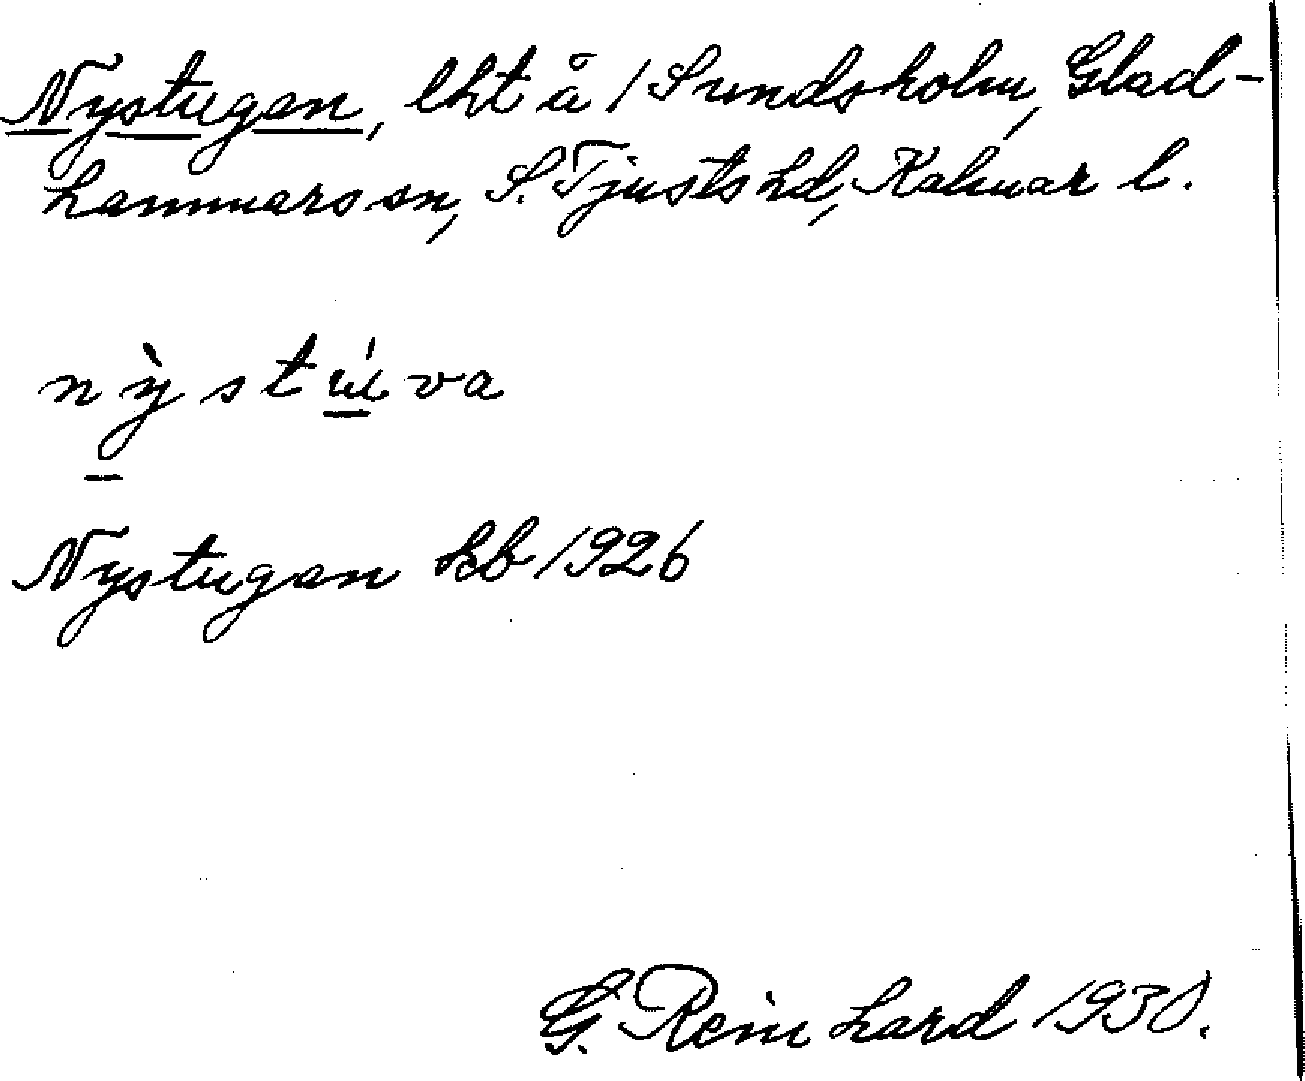 Nystugan, lht å / Sundsholm, Glad-
hammars sn, S. Tjusts hd, Kalmar l.
nỳstúva
Nystugan kb 1926
G. Reinhard 1930.